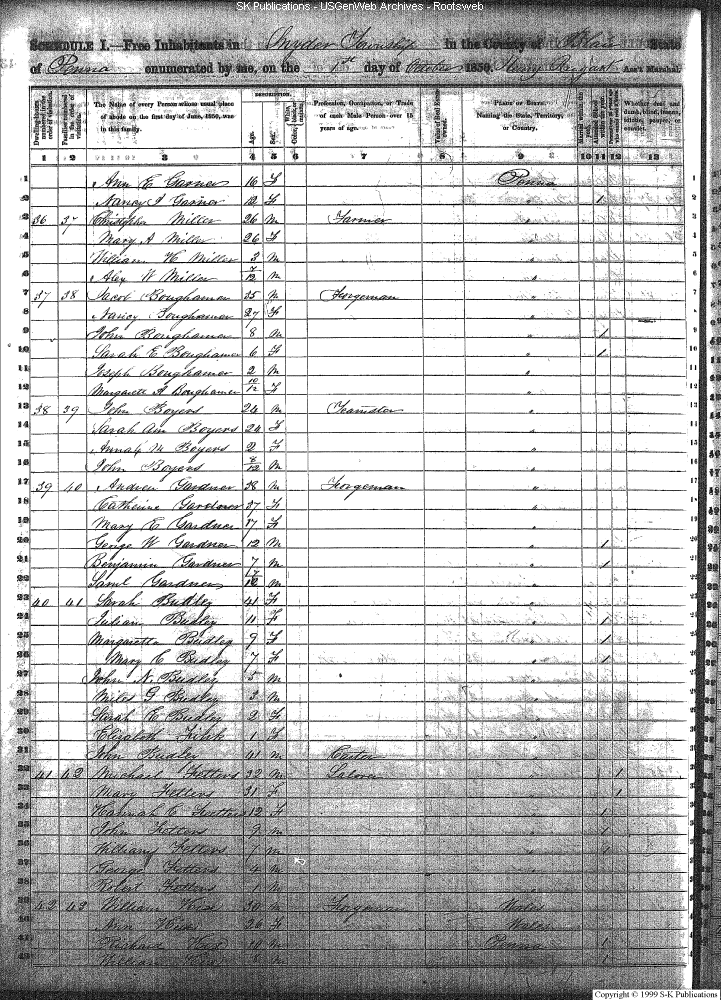 SK Publications - USGenWeb Archives - Rootsweb
SCHEDULE I.—Free Inhabitants in Snyder Township in the County of Blair State
of Penna enumerated by me, on the 1st day of October 1850. Henry Ass't Marshal.
Dwelling-houses numbered in the order of visitation.
Families numbered in the order of visitation.
The Name of every Person whose usual place of abode on the first day of June, 1850, was in this family.
DESCRIPTION.
Age.
Sex.
White, black, or mulatto.
Profession, Occupation, or Trade of each Male Person over 15 years of age.
Value of Real Estate owned.
PLACE OF BIRTH. Naming the State, Territory, or Country.
Married within the year.
Attended School within the year.
Whether deaf and dumb, blind, insane, idiotic, pauper, or convict.
1 2 3 4 5 6 7 8 9 10 11 12 13
1 Ann E Garner 16 F Penna
2 Nancy J Garner 12 F " 1
3 36 37 Christopher Miller 26 M Farmer "
4 Mary A Miller 26 F "
5 William H Miller 3 M "
6 Alex W Miller 7/12 M "
7 37 38 Jacob Boughamer 35 M Forgeman "
8 Nancy Boughamer 27 F "
9 John Boughamer 8 M " 1
10 Sarah E Boughamer 6 F " 1
11 Joseph Boughamer 2 M "
12 Margarett A Boughamer 10/12 F "
13 38 39 John Boyers 24 M Teamster "
14 Sarah Ann Boyers 24 F "
15 M Boyers 2 F "
16 John Boyers 8/12 M "
17 39 40 Andrew Gardner 38 M Forgeman "
18 Catherine Gardner 37 F "
19 Mary E Gardner 17 F "
20 George W Gardner 12 M " 1
21 Benjamin Gardner 7 M " 1
22 Saml Gardner M "
23 40 41 Sarah Budley 41 F "
24 Julian Budley 11 F " 1
25 Margaretta Budley 9 F " 1
26 Mary E Budley 7 F " 1
27 John N Budley 5 M "
28 Miles G Budley 3 M "
29 Sarah E Budley 2 F "
30 1 F "
31 John Budley 41 M "
32 41 42 Michael Fetters 32 M Laborer " 1
33 Mary Fetters 31 F " 1
34 Hannah C Fetters 12 F " 1
35 John Fetters 9 M " 1
36 William Fetters 7 M " 1
37 George Fetters 4 M "
38 Robert Fetters 1 M "
39 42 43 William 30 M Forgeman Wales
40 Ann 26 F Wales
41 Richard 10 M Penna 1
42 William 8 M " 1
Copyright © 1999 S-K Publications